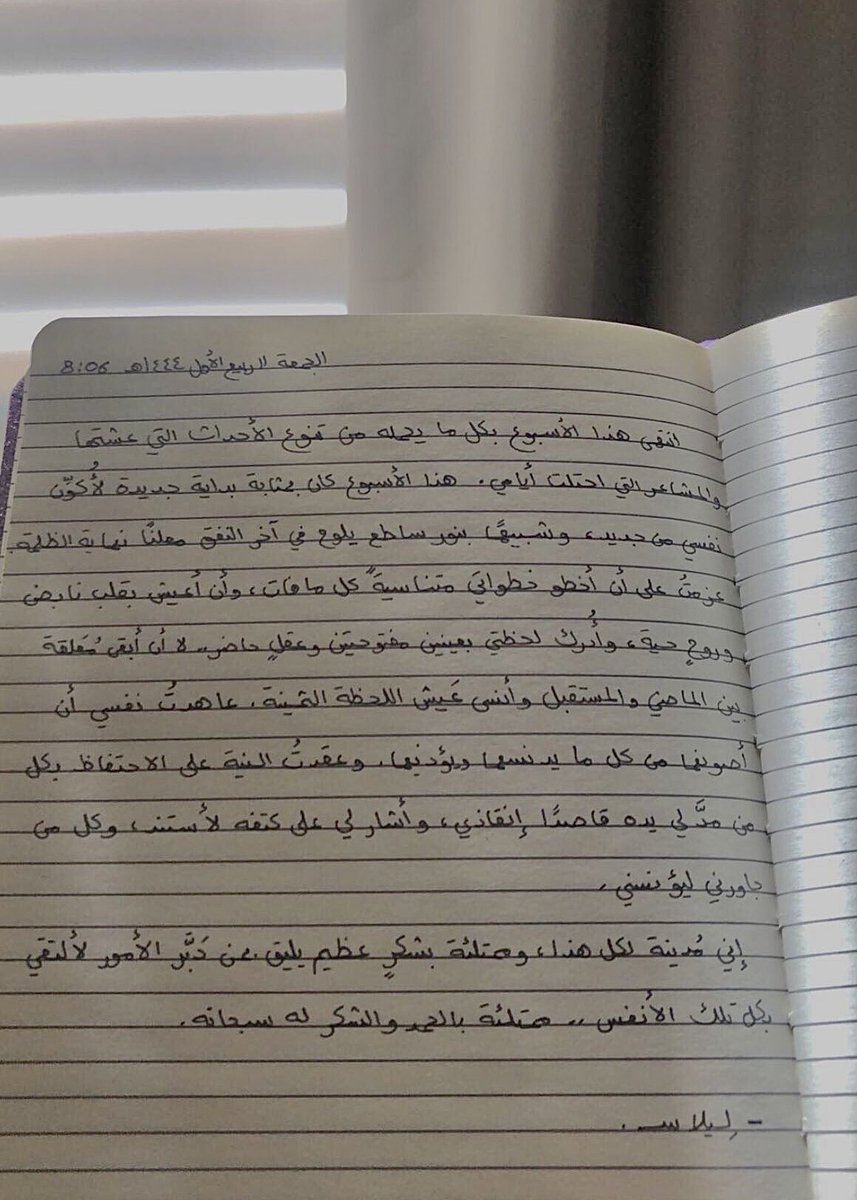 الجمعة ١١ ربيع الأول ١٤٤٤هـ 8:06
انتهى هذا الأسبوع بكل ما يحمله من تنوع الأحداث التي عشتها
والمشاعر التي احتلت أيامي. هذا الأسبوع كان بمثابة بداية جديدة لأُكوّن
نفسي من جديد، وشبيهًا بنور ساطع يلوح في آخر النفق معلنًا نهاية الظلمة
عزمتُ على أن أخطو خطواتي متناسيةً كل ما فات، وأن أعيش بقلب نابض
وروحٍ حية، وأُدرك لحظتي بعينين مفتوحتين وعقلٍ حاضر.. لا أن أبقى مُعَلقة
بين الماضي والمستقبل وأنسى عَيش اللحظة الثمينة. عاهدتُ نفسي أن
أصونها من كل ما يدنسها ويؤذيها. وعقدتُ النية على الاحتفاظ بكل
من مدَّ لي يده قاصدًا إنقاذي، وأشار لي على كتفه لأستند، وكل من
جاورني ليؤنسني.
إني مُدينة لكل هذا، وممتلئة بشكرٍ عظيم يليق بمن دَبَّر الأمور لألتقي
بكل تلك الأنفس .. ممتلئة بالحمد والشكر له سبحانه.
- لِيلاس.